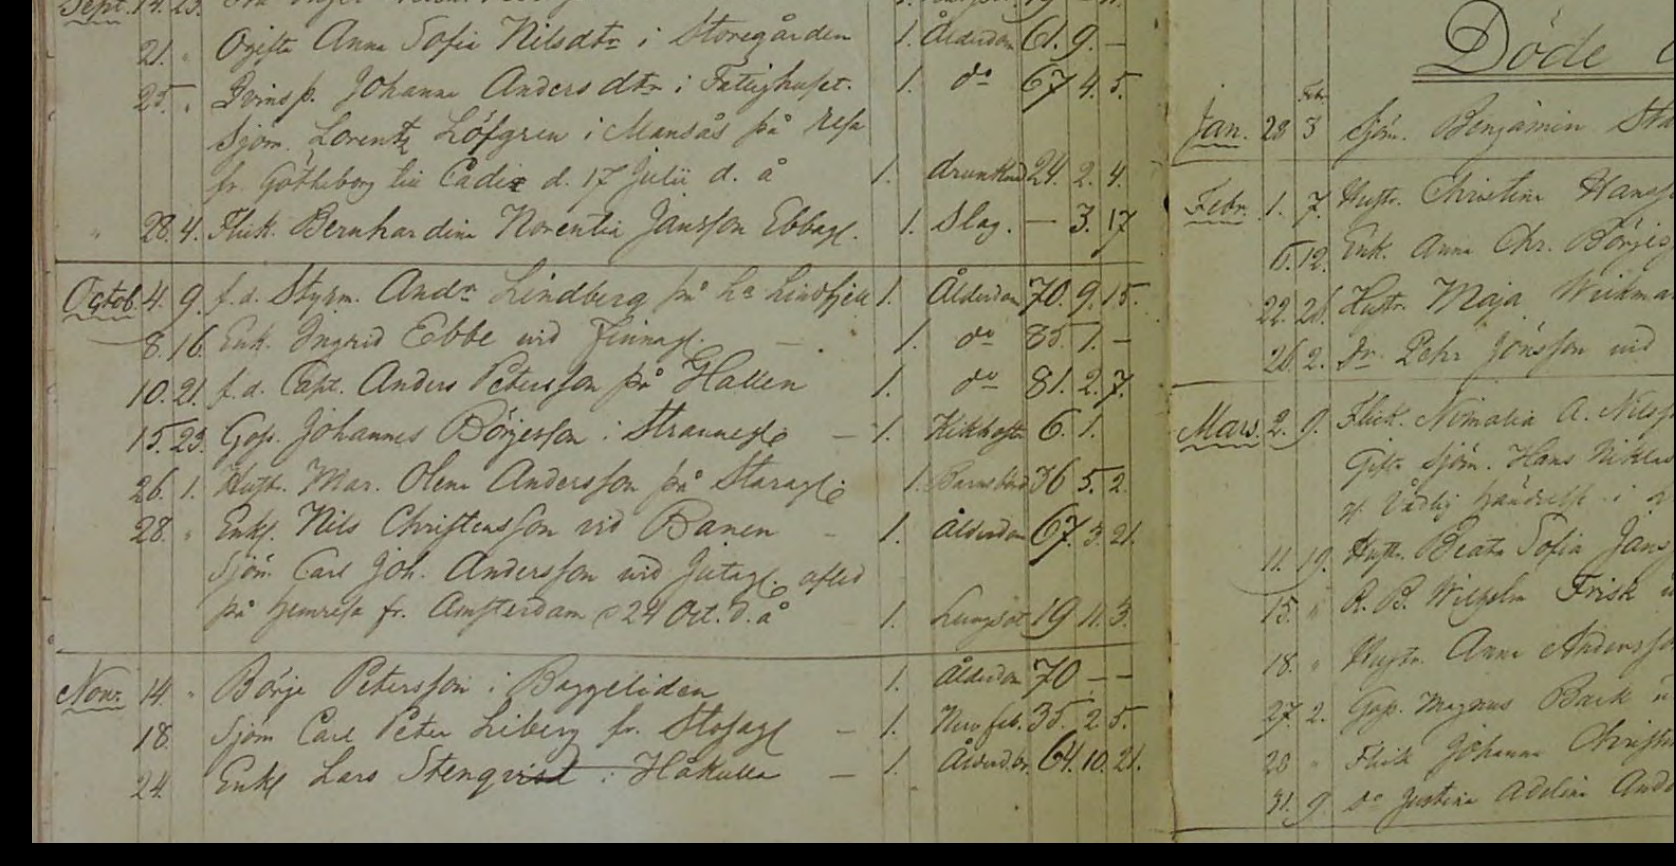 Sept. 14. 23.
21. " Ogifta Anna Sofia Nilsdtr i Storegården 1. Ålderdom 61. 9. —
25. " Qvinsp. Johanna Andersdtr i Fattighuset. 1. do 67 4. 5.
Sjöm. Lorentz Löfgren i Mansås på resa
fr. Götheborg till Cadix d. 17 Julii d. å 1. drunknad 24. 2. 4.
" 28. 4. Flick. Bernhardina Norentia Jansson Ebbagl. 1. Slag. — 3. 17
Octob. 4. 9. f.d. Styrm. Andr Lindberg på La Lindfjell 1. Ålderdom 70. 9. 15.
8. 16. Enk. Ingrid Ebbe vid Finnagl. — 1. do 85. 1. —
10. 21. f.d. Capt. Anders Petersson på Hallen 1. do 81. 2. 7.
15. 23. Goss. Johannes Börjesson i — 1. Kikhosta 6. 1.
26. 1. Hustr. Mar. Olena Andersson på 1. Barnsbörd 36 5. 2.
28. " Enkl. Nils Christensson vid Banen — 1. Ålderdom 67. 3. 21.
Sjöm. Carl Joh. Andersson vid afled
på hemresa fr. Amsterdam d 24 Oct. d. å 1. Lungsot 19 11. 3.
Nov. 14. " Börje Petersson i Baggeliden 1. Ålderdom 70 — —
18. Sjöm Carl Peter Liberg fr. — 1. Nervfeb. 35. 2. 5.
24. Enkl Lars Stenqvist i Håkulla — 1. Ålderd. 64. 10. 21.
Döde
Febr
Jan. 28 3 Sjöm. Benjamin
Febr. 1. 7. Hustr. Christina Hanss
12. Enk. Anna Chr. Börjes
22. 26. Hustr. Maja
26. 2. Dr. Pehr Jönsson vid
Mars. 2. 9. Flick. A. Nils
Gift Sjöm. Hans Niklas
af Vådlig händelse i
11. 19. Hustr. Beata Sofia Jans
15. " R. B. Wilhelm Frisk
18. " Hustr. Anna Andersso
27. 2. Goss. Magnus Back
28 " Flick Johanna Christ
31. 9. Do Justina Adelina Ande